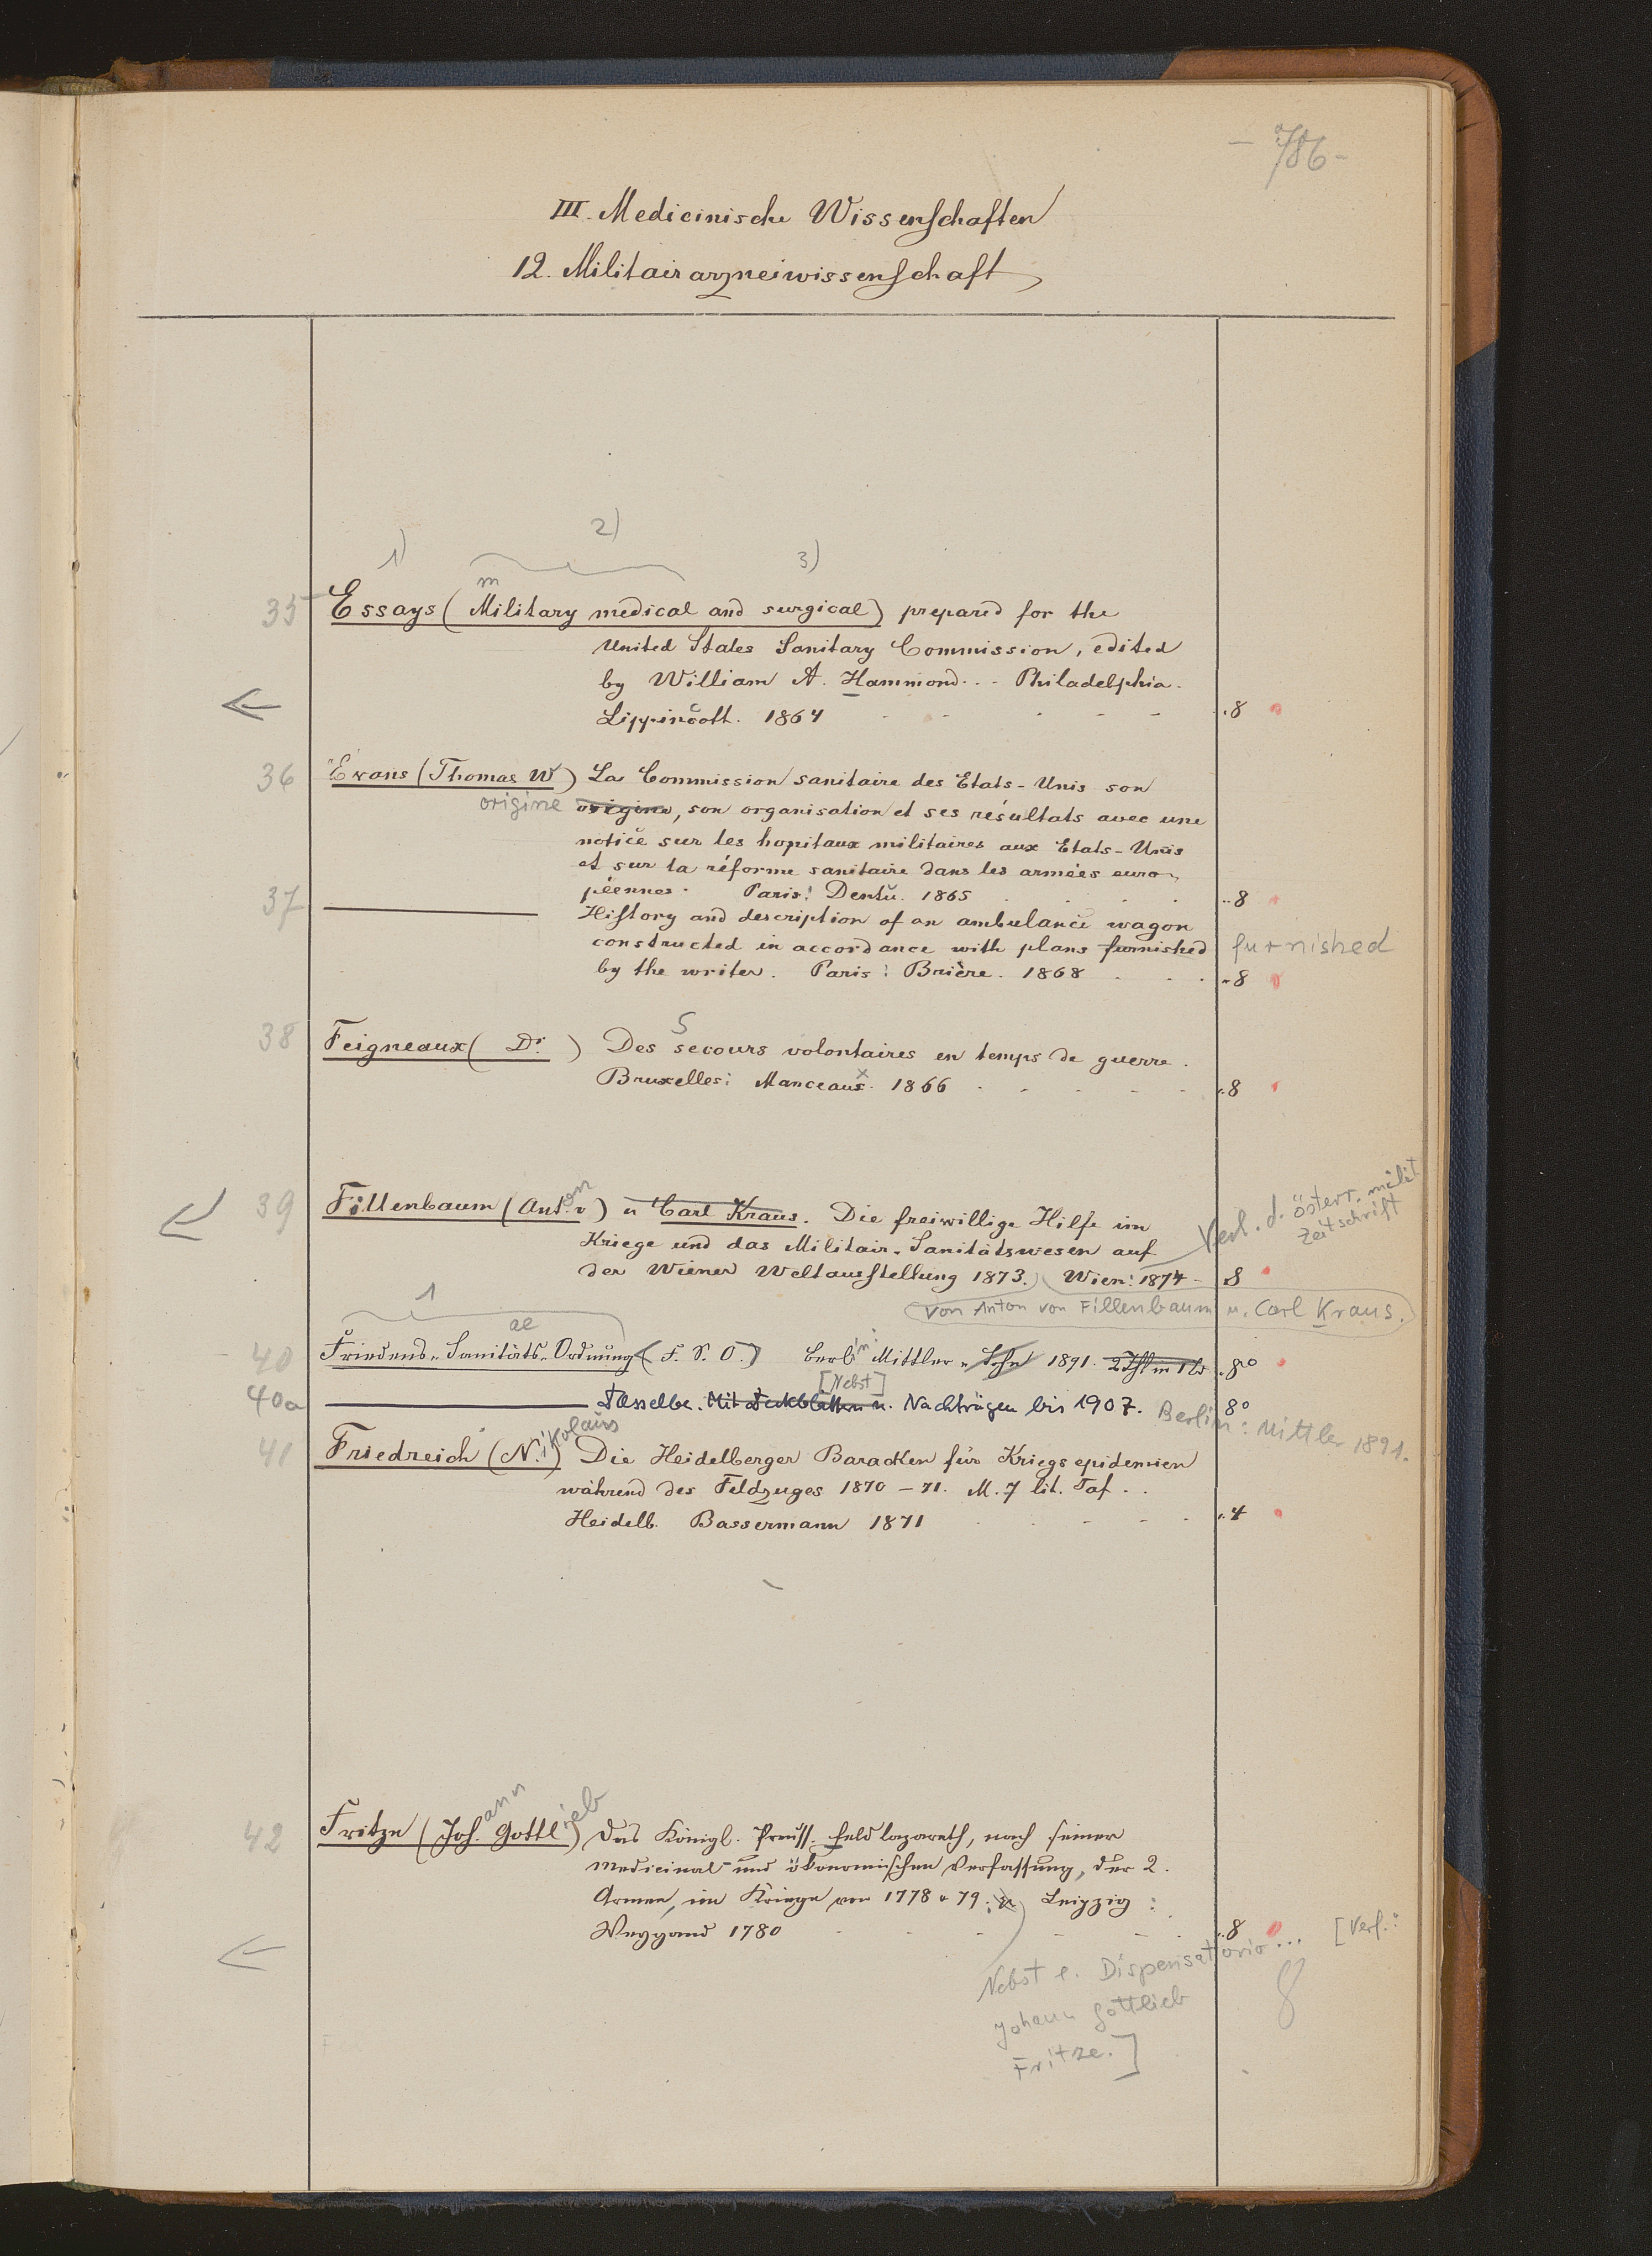 - 786 -
III. Medicinische Wissenschaften
12. Militairarzneiwissenschaft
1) 2) 3)
m
35 Essays (Military medical and surgical) prepared for the
United States Sanitary Commission, edited
by William A. Hammond. . - Philadelphia.
Lippincott. 1864 8
36 Evans (Thomas W) La Commission sanitaire des Etats-Unis son
origine origine, son organisation et ses résultats avec une
notice sur les hopitaux militaires aux Etats-Unis
et sur la réforme sanitaire dans les armées euro-
péennes. Paris: Dentu. 1865 8
37 History and description of an ambulance wagon
constructed in accordance with plans furnished furnished
by the writer. Paris: Brière. 1868 8
38 Feigneaux ( Dr. ) Des secours volontaires en temps de guerre.
Bruxelles: Manceaux. 1866 8
39 Fillenbaum (Anton v) u Carl Kraus. Die freiwillige Hilfe im
Kriege und das Militair-Sanitätswesen auf
der Wiener Weltausstellung 1873. Wien: 1874 - 8
Verl. d. österr. milit
Zeitschrift
von Anton von Fillenbaum u. Carl Kraus.
1
ae
40 Friedens-Sanitäts-Ordnung (F. S. O.) Berlin Mittler u. Sohn 1891. 8°
[Nebst]
40a Dasselbe. Mit Deckblättern u. Nachträgen bis 1907. 8°
Berlin: Mittler 1891.
41 Friedreich (Nikolaus) Die Heidelberger Baracken für Kriegsepidemien
während des Feldzuges 1870-71. M. 7 lit. Taf. .
Heidelb. Bassermann 1871 4
42 Fritze (Johann Gottlieb) Das Königl. Preuss. Feldlazareth, nach seiner
Medicinal- und ökonomischen Verfassung, der 2.
Armee, im Kriege von 1778 u 79. Leipzig:
Weygand 1780 8
Nebst e. Dispensatorio... [Verf.:
Johann Gottlieb
Fritze.]
8